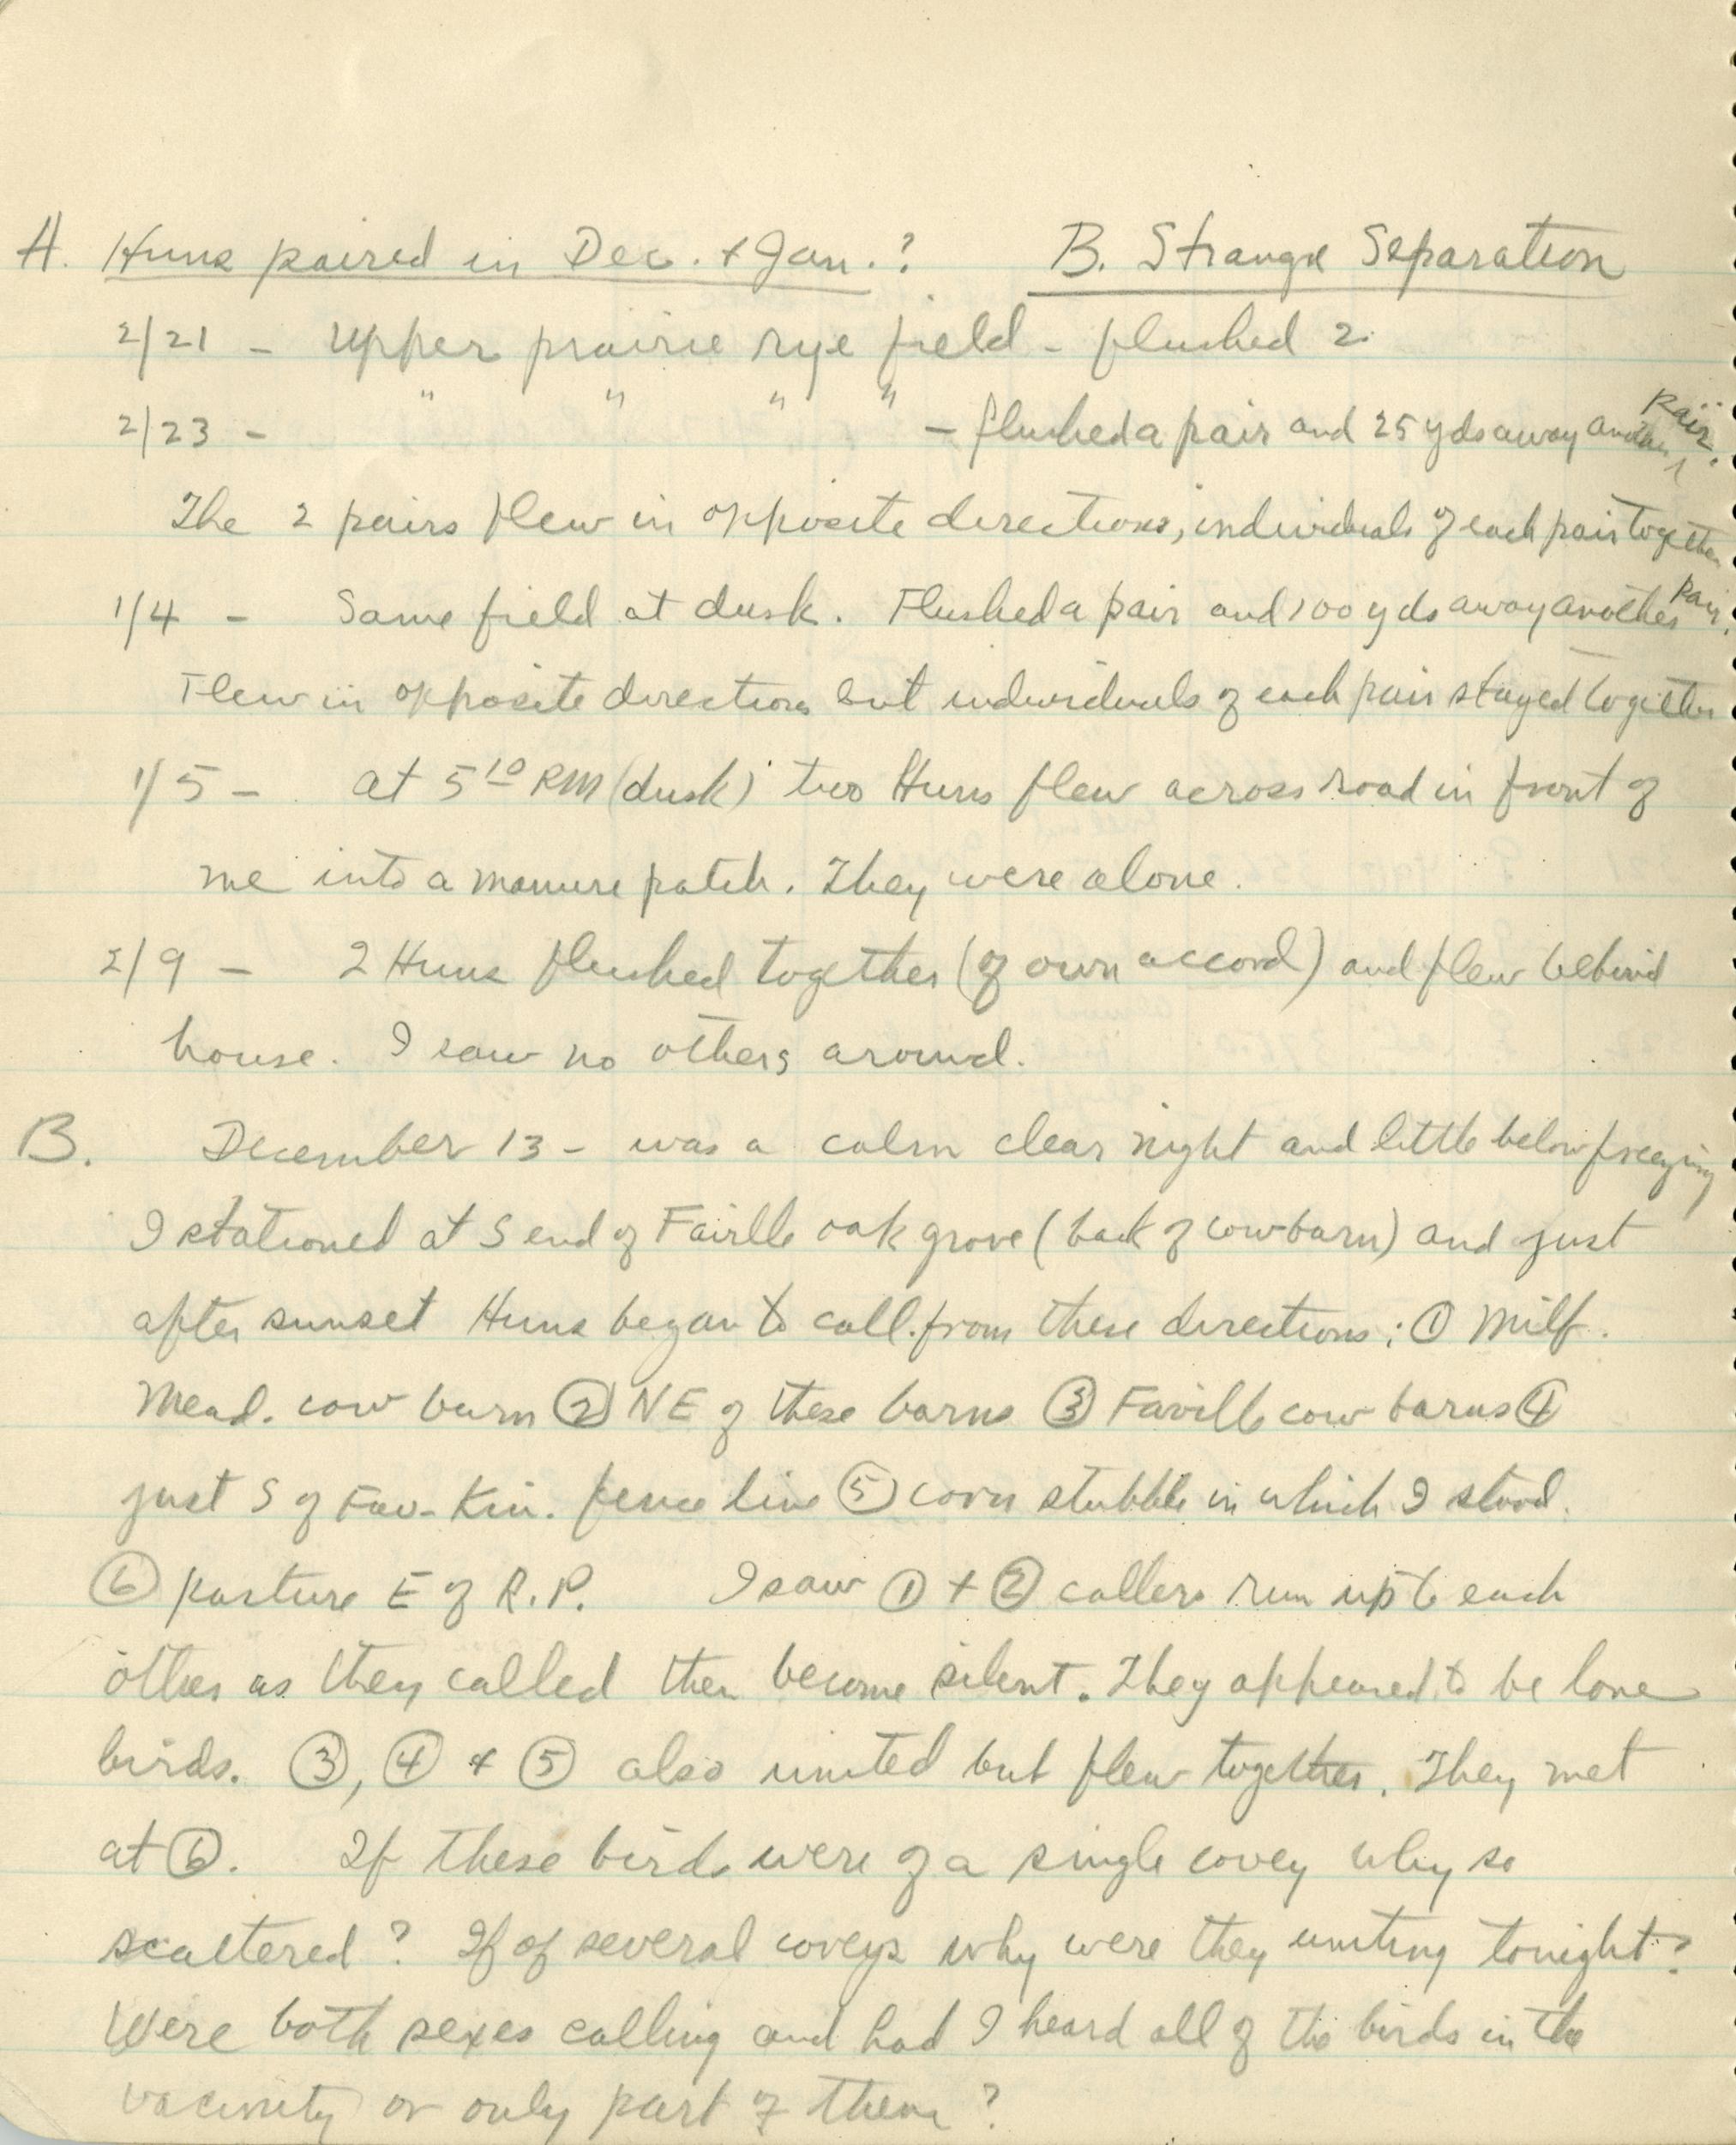 A. Huns paired in Dec. + Jan.? B. Strange Separation
2/21 - Upper prairie rye field - flushed 2.
2/23 - " " " " - flushed a pair and 25 yds away another pair.
The 2 pairs flew in opposite directions, individuals of each pair together
1/4 - Same field at dusk. Flushed a pair and 100 yds away another pair.
Flew in opposite directions but individuals of each pair stayed together
1/5 - at 5 10 PM (dusk) two Huns flew across road in front of
me into a manure patch. They were alone.
2/9 - 2 Huns flushed together (of own accord) and flew behind
house. I saw no others around.
B. December 13 - was a calm clear night and little below freezing
I stationed at S end of Faville oak grove (back of cow barn) and just
after sunset Huns began to call from these directions: ① Milf.
Mead. cow barn ② NE of these barns ③ Faville cow barns ④
just S of Fav-Kin. fence line ⑤ corn stubble in which I stood.
⑥ pasture E of R.P. I saw ① + ② callers run up to each
other as they called then become silent. They appeared to be lone
birds. ③, ④ + ⑤ also united but flew together. They met
at ⑥. If these birds were of a single covey why so
scattered? If of several coveys why were they uniting tonight?
Were both sexes calling and had I heard all of the birds in the
vacinity or only part of them?